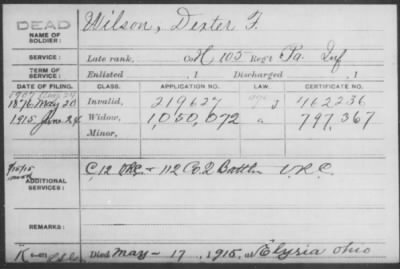 DEAD
NAME OF SOLDIER: Wilson, Dexter F.
SERVICE: Late rank, Co H 105 Reg't Pa. Inf
TERM OF SERVICE: Enlisted , 1 Discharged , 1
DATE OF FILING. CLASS. APPLICATION NO. CERTIFICATE NO.
1876 May 20 Invalid, 219627 462236
1915 June 24 Widow, 1,050,072 a 797,367
Minor,
ADDITIONAL SERVICES: C, 12 V.R.C. - 112 Co 2 Battln V.R.C.
REMARKS:
Died May - 17 , 1915, at Elyria Ohio